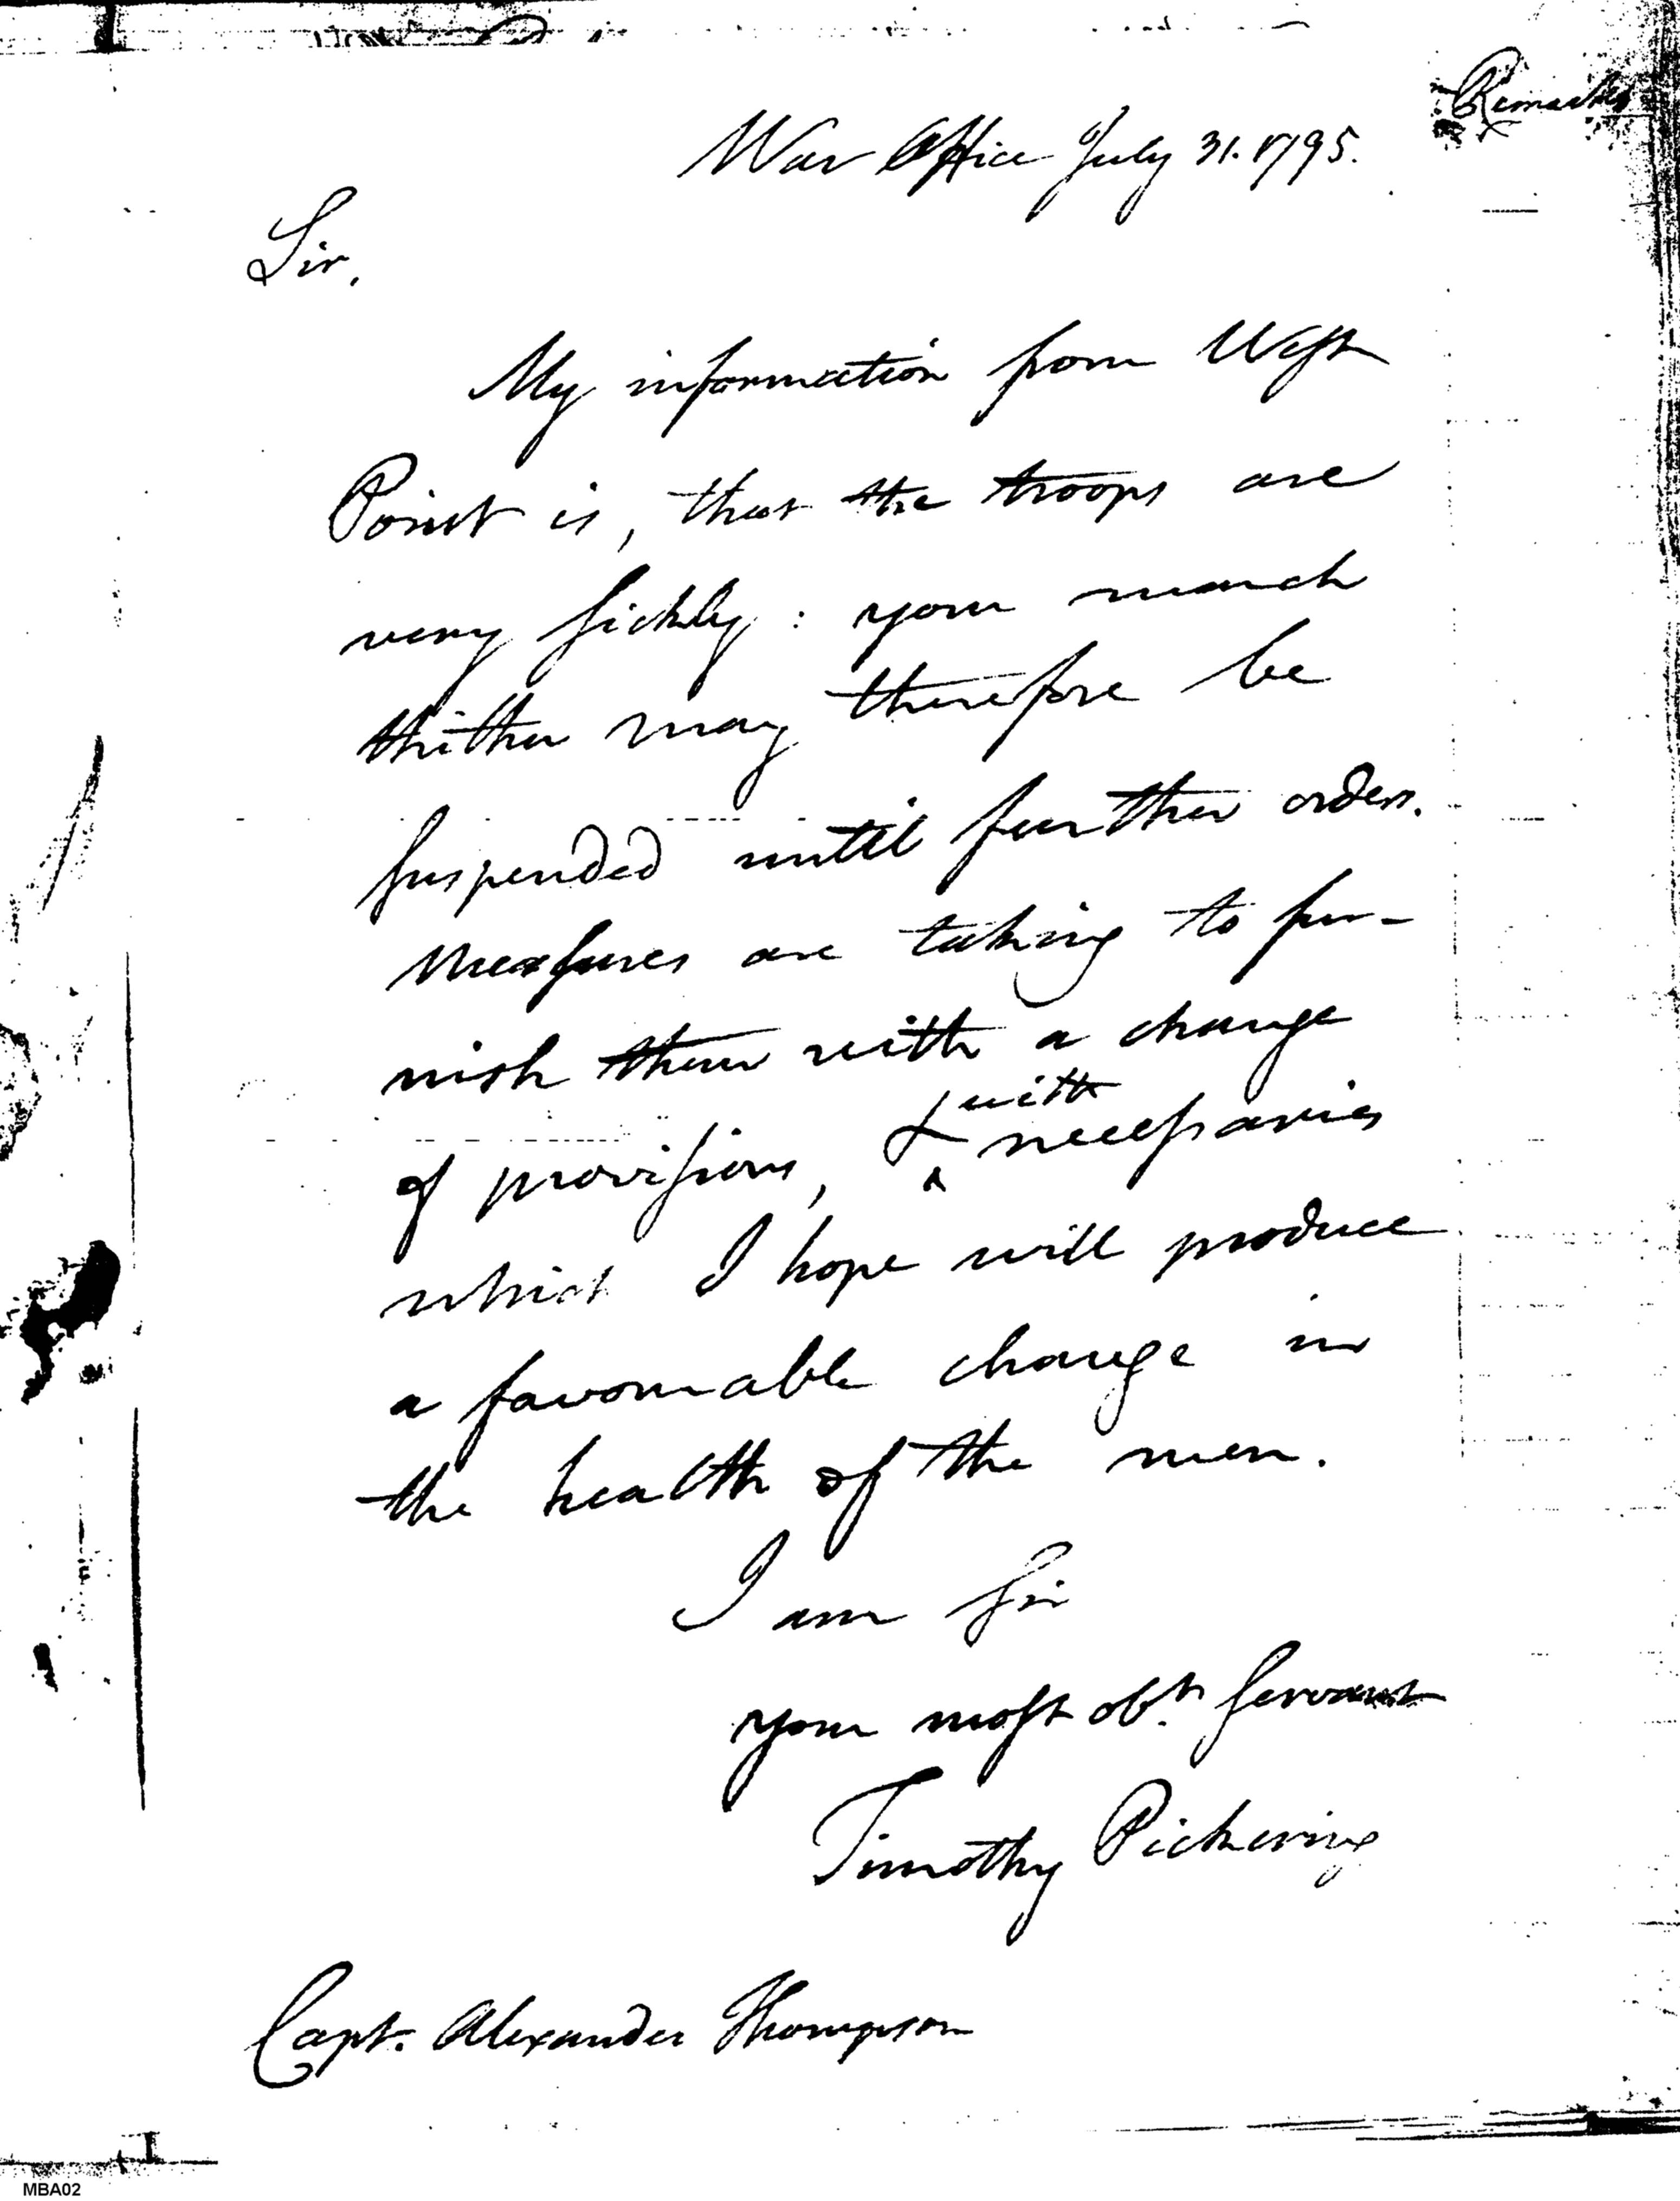 Remarks
War Office July 31. 1795.
Sir,
My information from West
Point is, that the troops are
very sickly: your march
thither may therefore be
suspended until further orders.
Measures are taking to fur-
nish them with a change
with
of provisions, & necessaries
which I hope will produce
a favourable change in
the health of the men.
I am Sir
your most obt. servant
Timothy Pickering
Capt. Alexander Thompson
MBA02